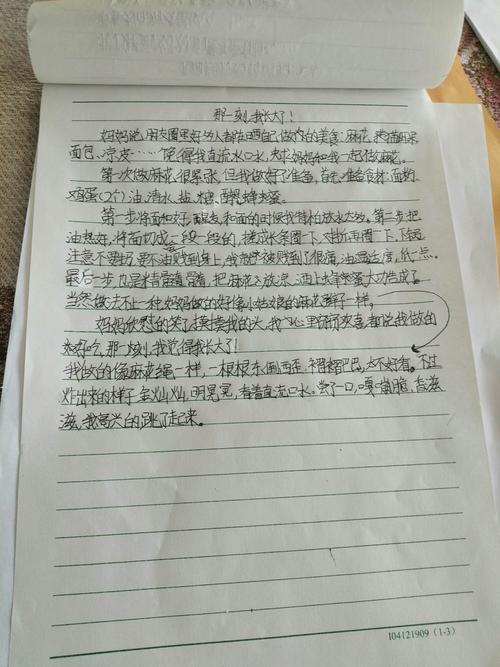 那一刻,我长大了!
妈妈说,朋友圈里好多人都在晒自己做的美食:麻花、
面包、凉皮……馋得我直流口水,央求妈妈和我一起做麻花。
第一次做麻花很紧张,但我做好了准备,首先准备食材:面粉、
鸡蛋(2个)油、清水、盐、糖、蜂蜜。
第一步将面和好,醒发,和面的时候我特怕放水太多。第二步把
油热好,将面切成一段一段的,搓成长条圈一下,对折再圈一下,下锅
注意不要扔,要不油贱到身上,我就被贱到了很痛,油温适度,低一点。
最后一步,也是精髓,把麻花放凉,洒上蜂蜜大功告成了
当然做法不止一种,妈妈做的好像小姑娘的麻花辫子一样,
妈妈欣慰的笑了,摸摸我的头,我心里,都说我做的
太好吃,那一刻,我觉得我长大了!
我做的像麻花绳一样,一根根东倒西歪,褶褶巴巴,太不好看。不过
炸出来的样子金灿灿,明晃晃,看着直流口水。尝了一口,嘎嘣脆,香滋
滋,我高兴的跳了起来。
104121909 (1-3)